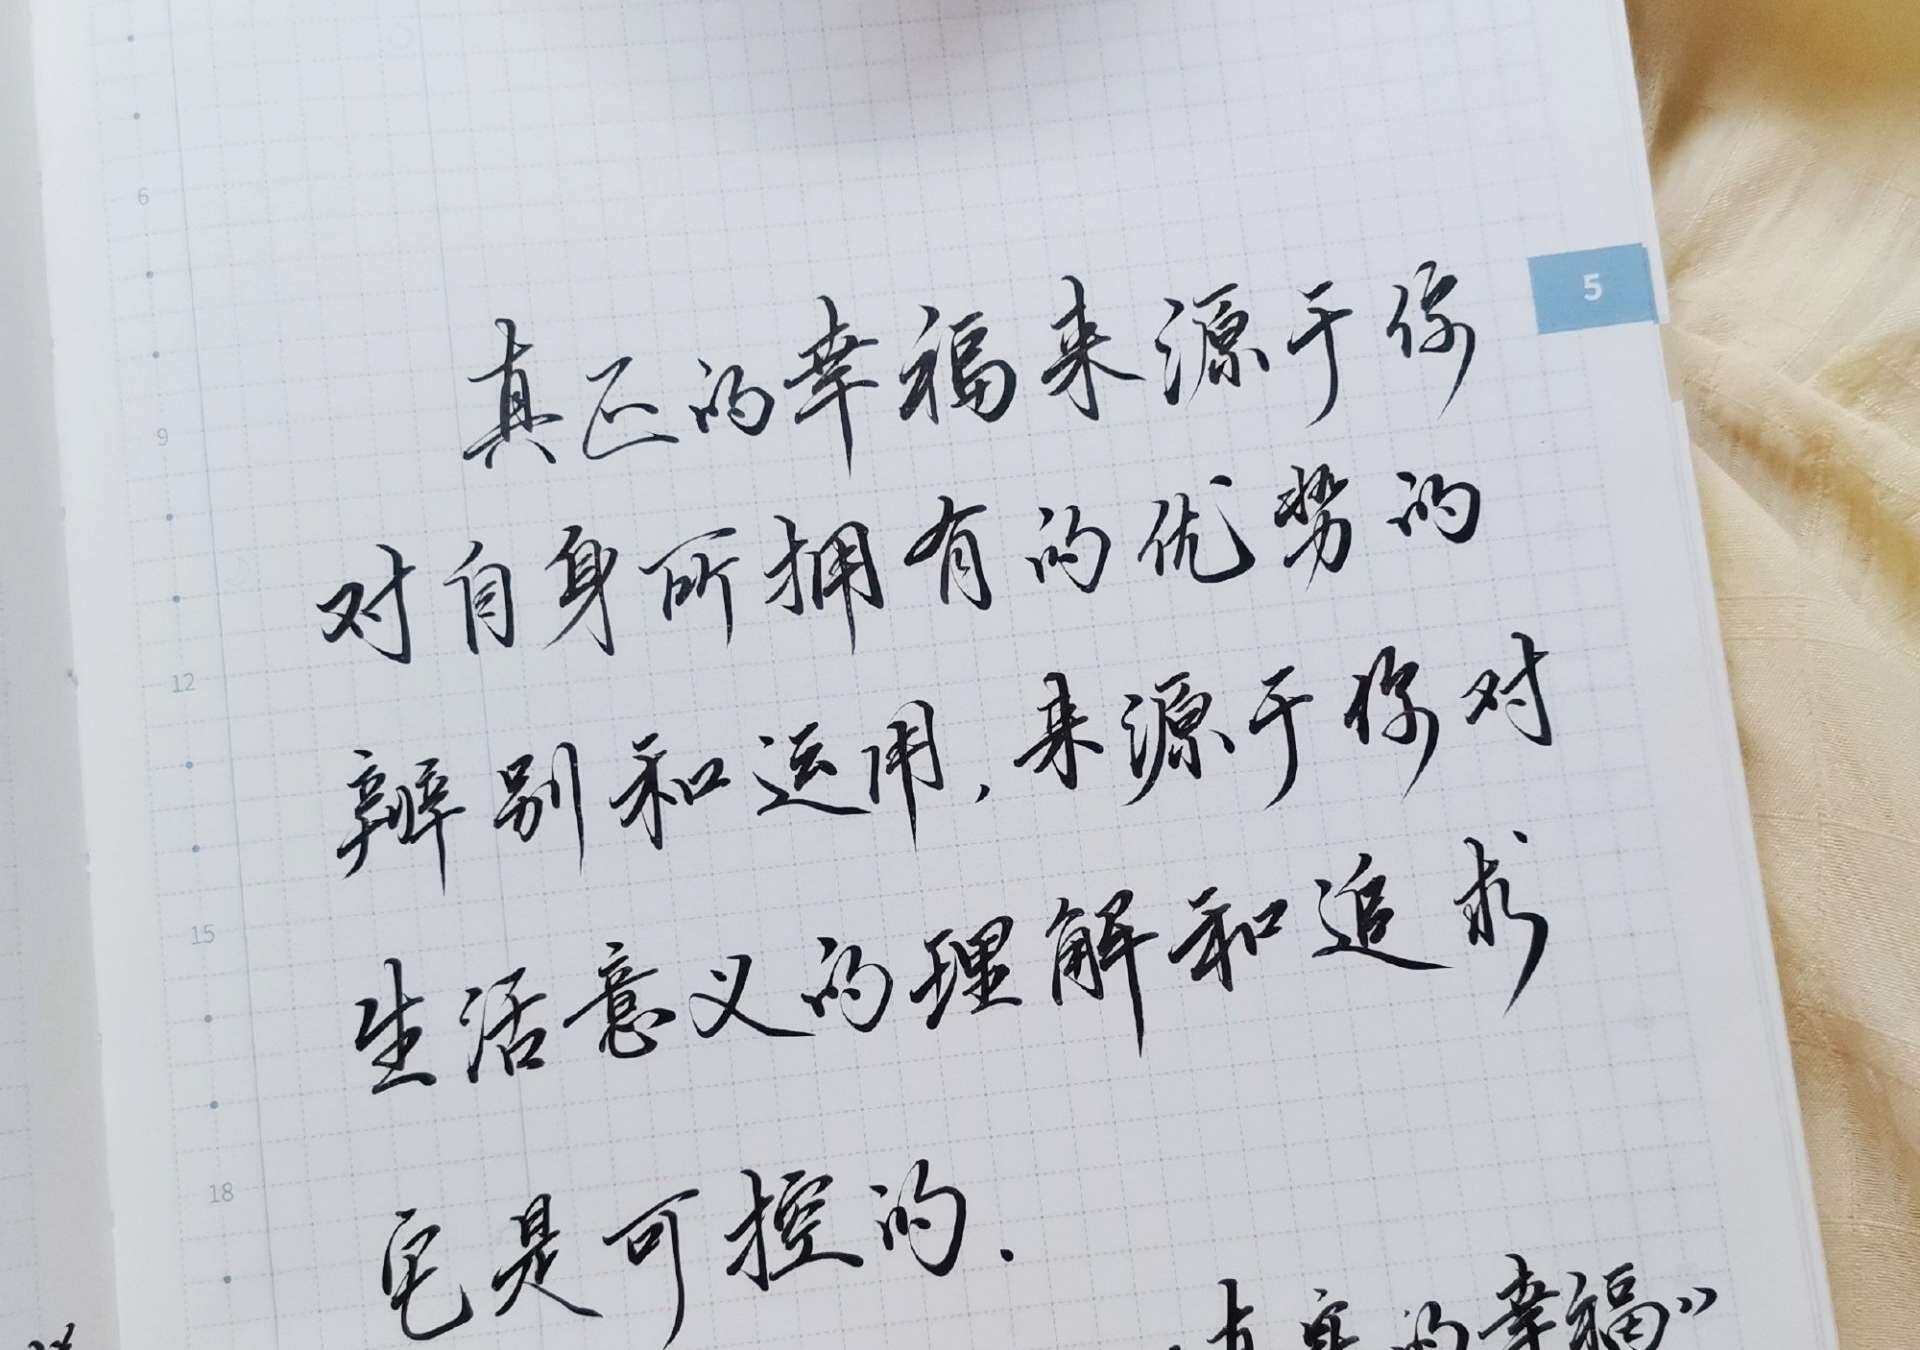 6
9
12
15
18
5
真正的幸福来源于你
对自身所拥有的优势的
辨别和运用，来源于你对
生活意义的理解和追求
它是可控的.
的幸福》